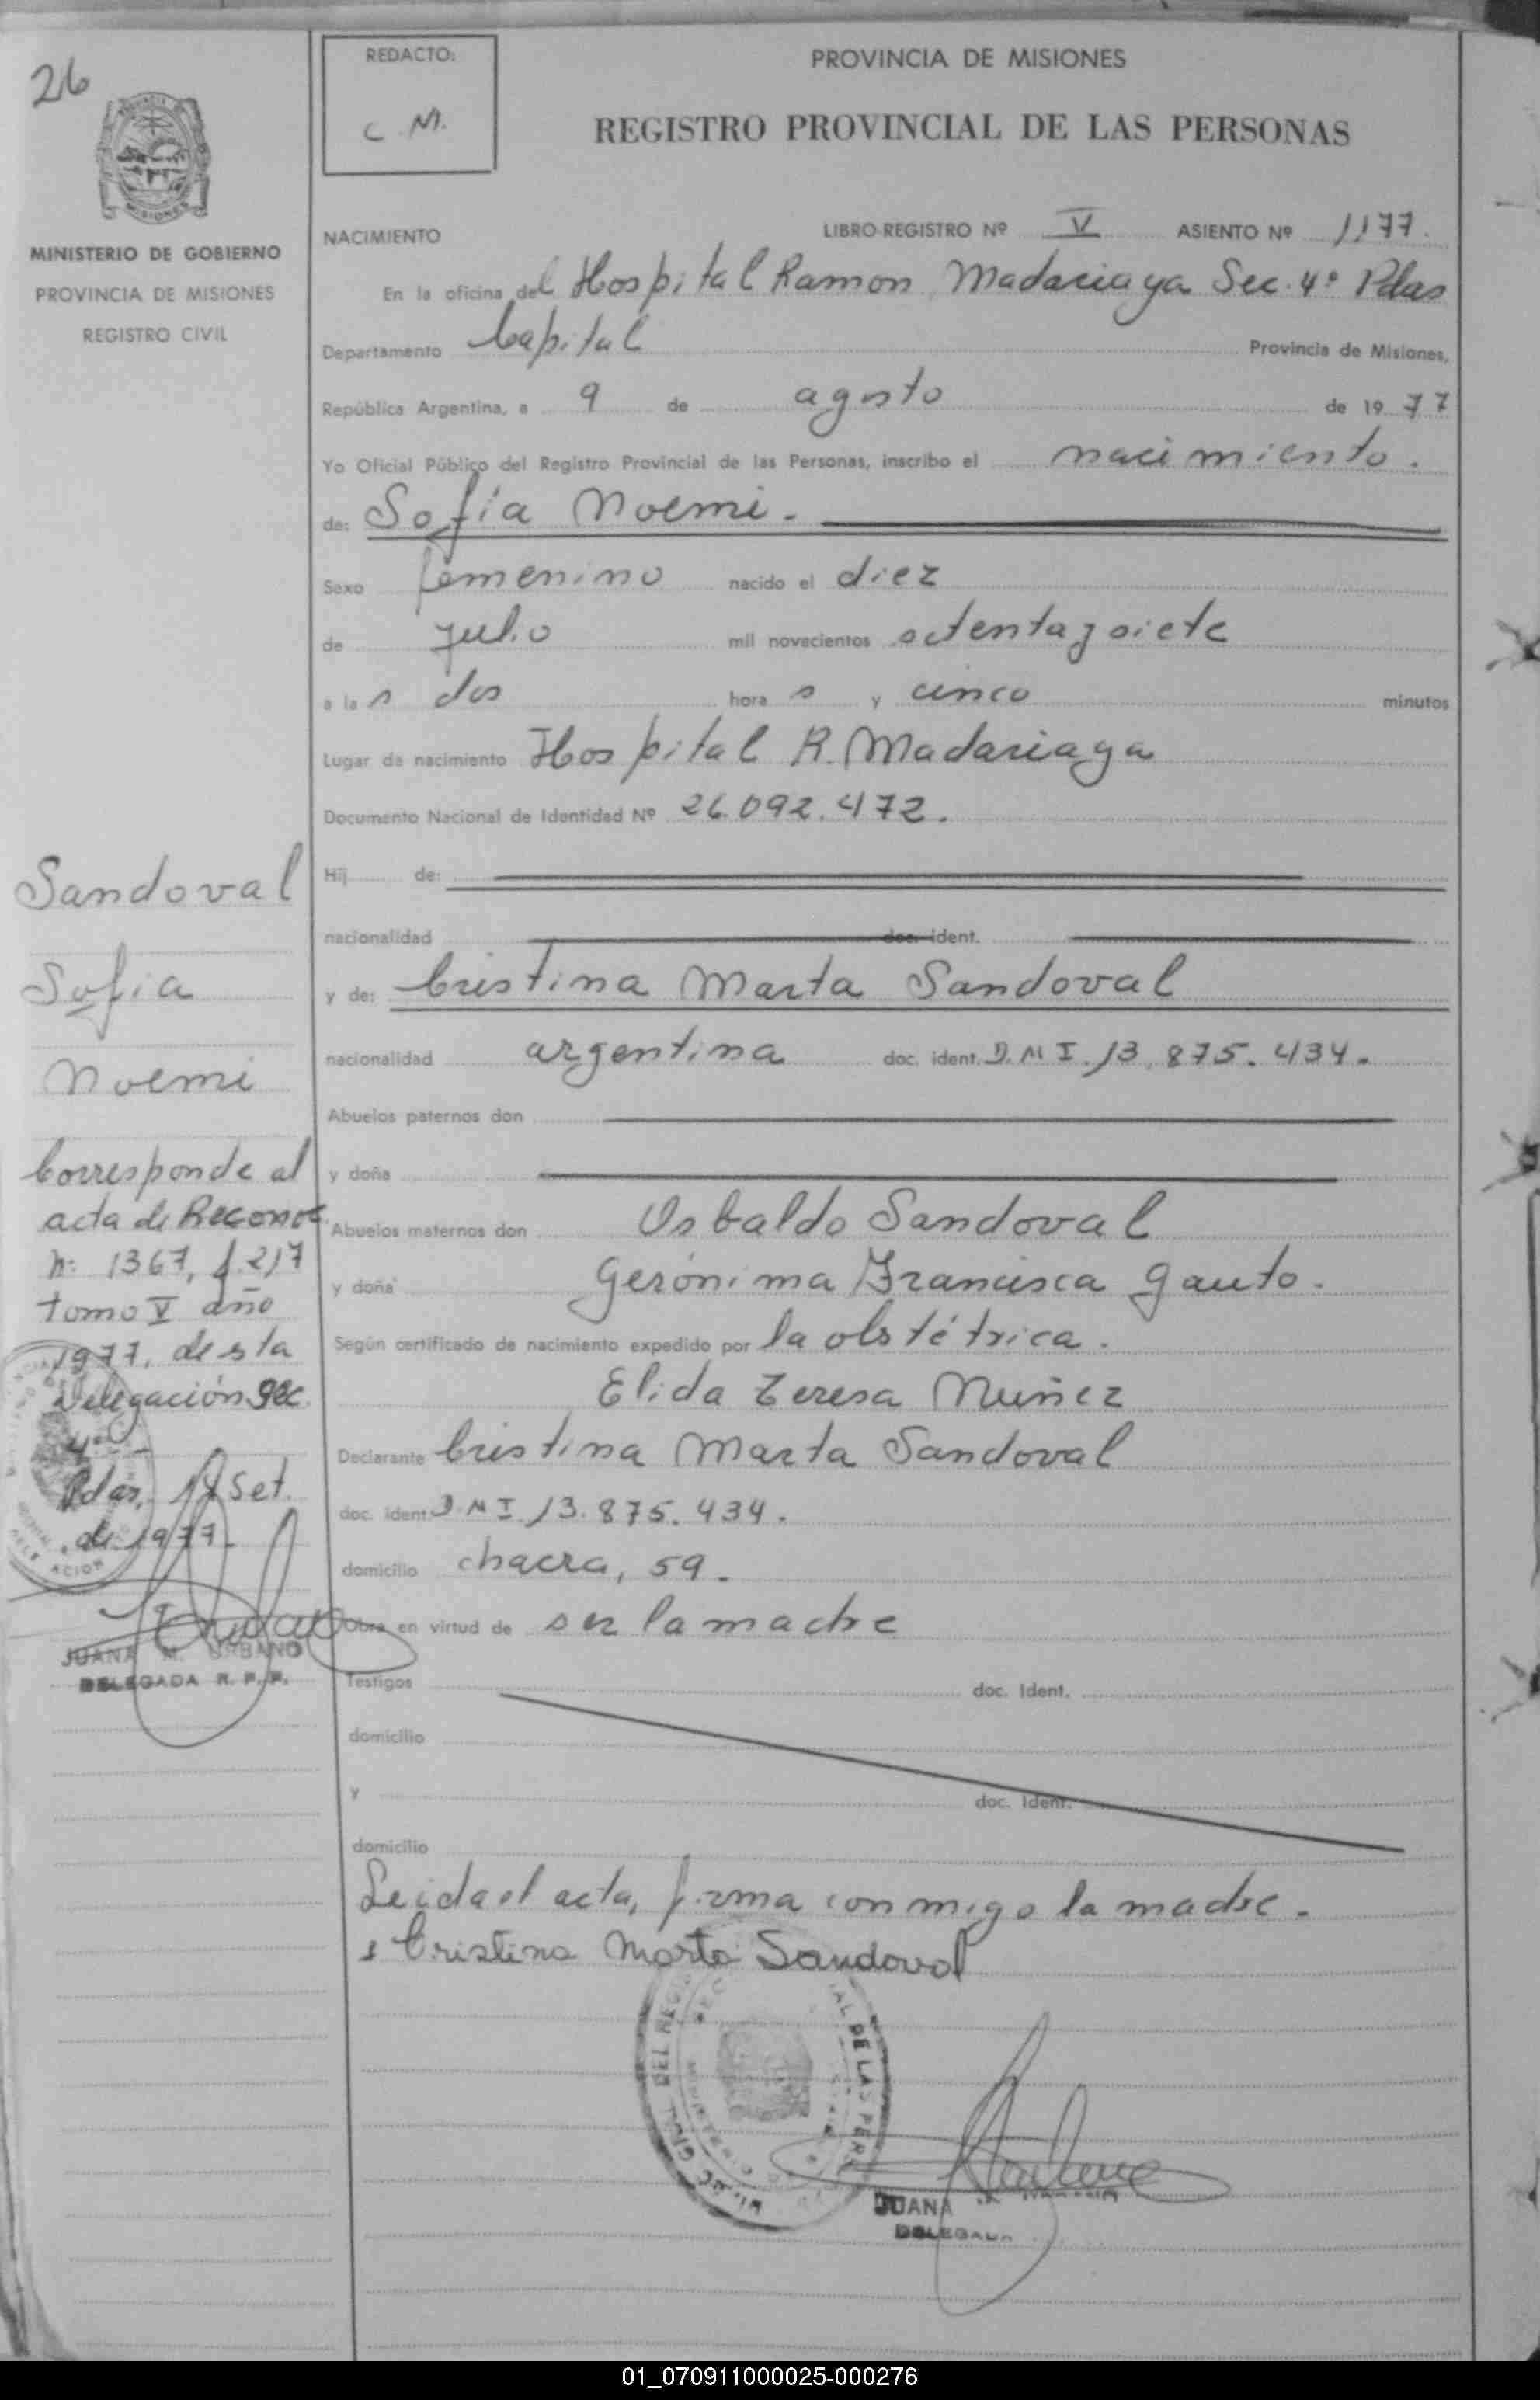 26
MISIONES
MINISTERIO DE GOBIERNO
PROVINCIA DE MISIONES
REGISTRO CIVIL
REDACTO:
C. M.
PROVINCIA DE MISIONES
REGISTRO PROVINCIAL DE LAS PERSONAS
NACIMIENTO LIBRO-REGISTRO Nº V ASIENTO Nº 1177.
En la oficina del Hospital Ramon Madariaga Sec. 4º Pdas
Departamento Capital Provincia de Misiones,
República Argentina, a 9 de agosto de 1977
Yo Oficial Público del Registro Provincial de las Personas, inscribo el nacimiento.
de: Sofía Noemi.-
Sexo femenino nacido el diez
de julio mil novecientos setentaysiete
a las dos horas y cinco minutos
Lugar de nacimiento Hospital R. Madariaga
Documento Nacional de Identidad Nº 26.092.472.
Hij de:
nacionalidad doc. ident.
y de: Cristina Marta Sandoval
nacionalidad argentina doc. ident. D.N.I. 13.875.434.
Abuelos paternos don
y doña
Abuelos maternos don Osbaldo Sandoval
y doña Gerónima Francisca Gauto.
Según certificado de nacimiento expedido por la obstétrica.
Elida Teresa Nuñez
Declarante Cristina Marta Sandoval
doc. ident. D.N.I. 13.875.434.
domicilio chacra, 59.
Obra en virtud de ser la madre
Testigos doc. Ident.
domicilio
y doc. Ident.
domicilio
Leida el acta, firma conmigo la madre.
Cristina Marta Sandoval
JUANA
DELEGADA
Sandoval
Sofia
Noemi
Corresponde al
acta de Reconoc.
Nº 1367, f.217
tomo V año
1977, de sta
Delegación Sec.
4º
Pdas, 14 Set.
de 1977.
JUANA M. URBANO
DELEGADA R. P. P.
01_070911000025-000276